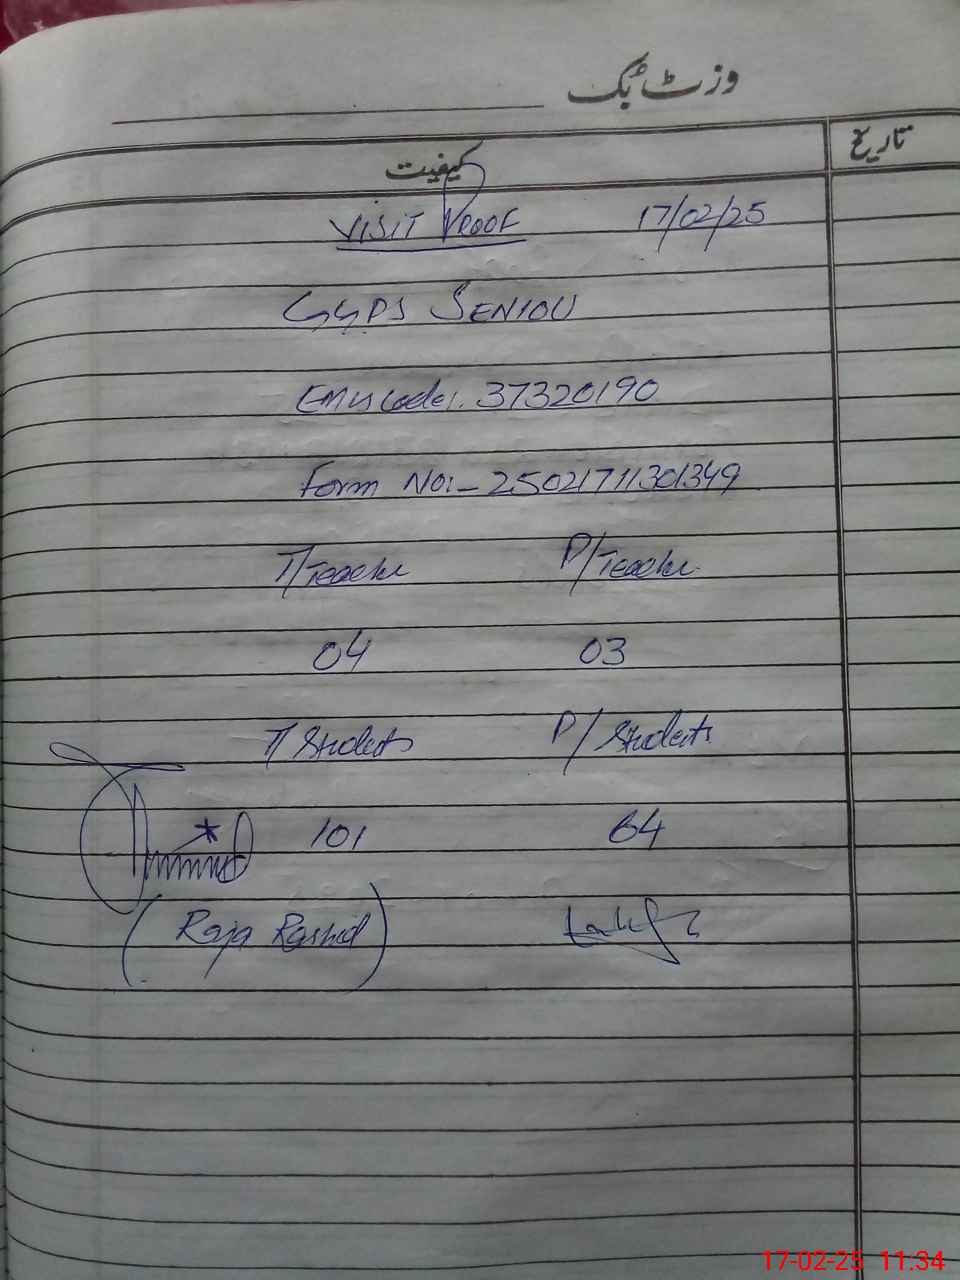 وزٹ بک
تاریخ
کیفیت
VISIT PROOF 17/02/25
GGPS SENIOU
EMIS Code:. 37320190
Form No:- 25021711301349
T/Teache P/Teache
04 03
T/Students P/Students
101 64
(Raja Rashid)
17-02-25 11:34